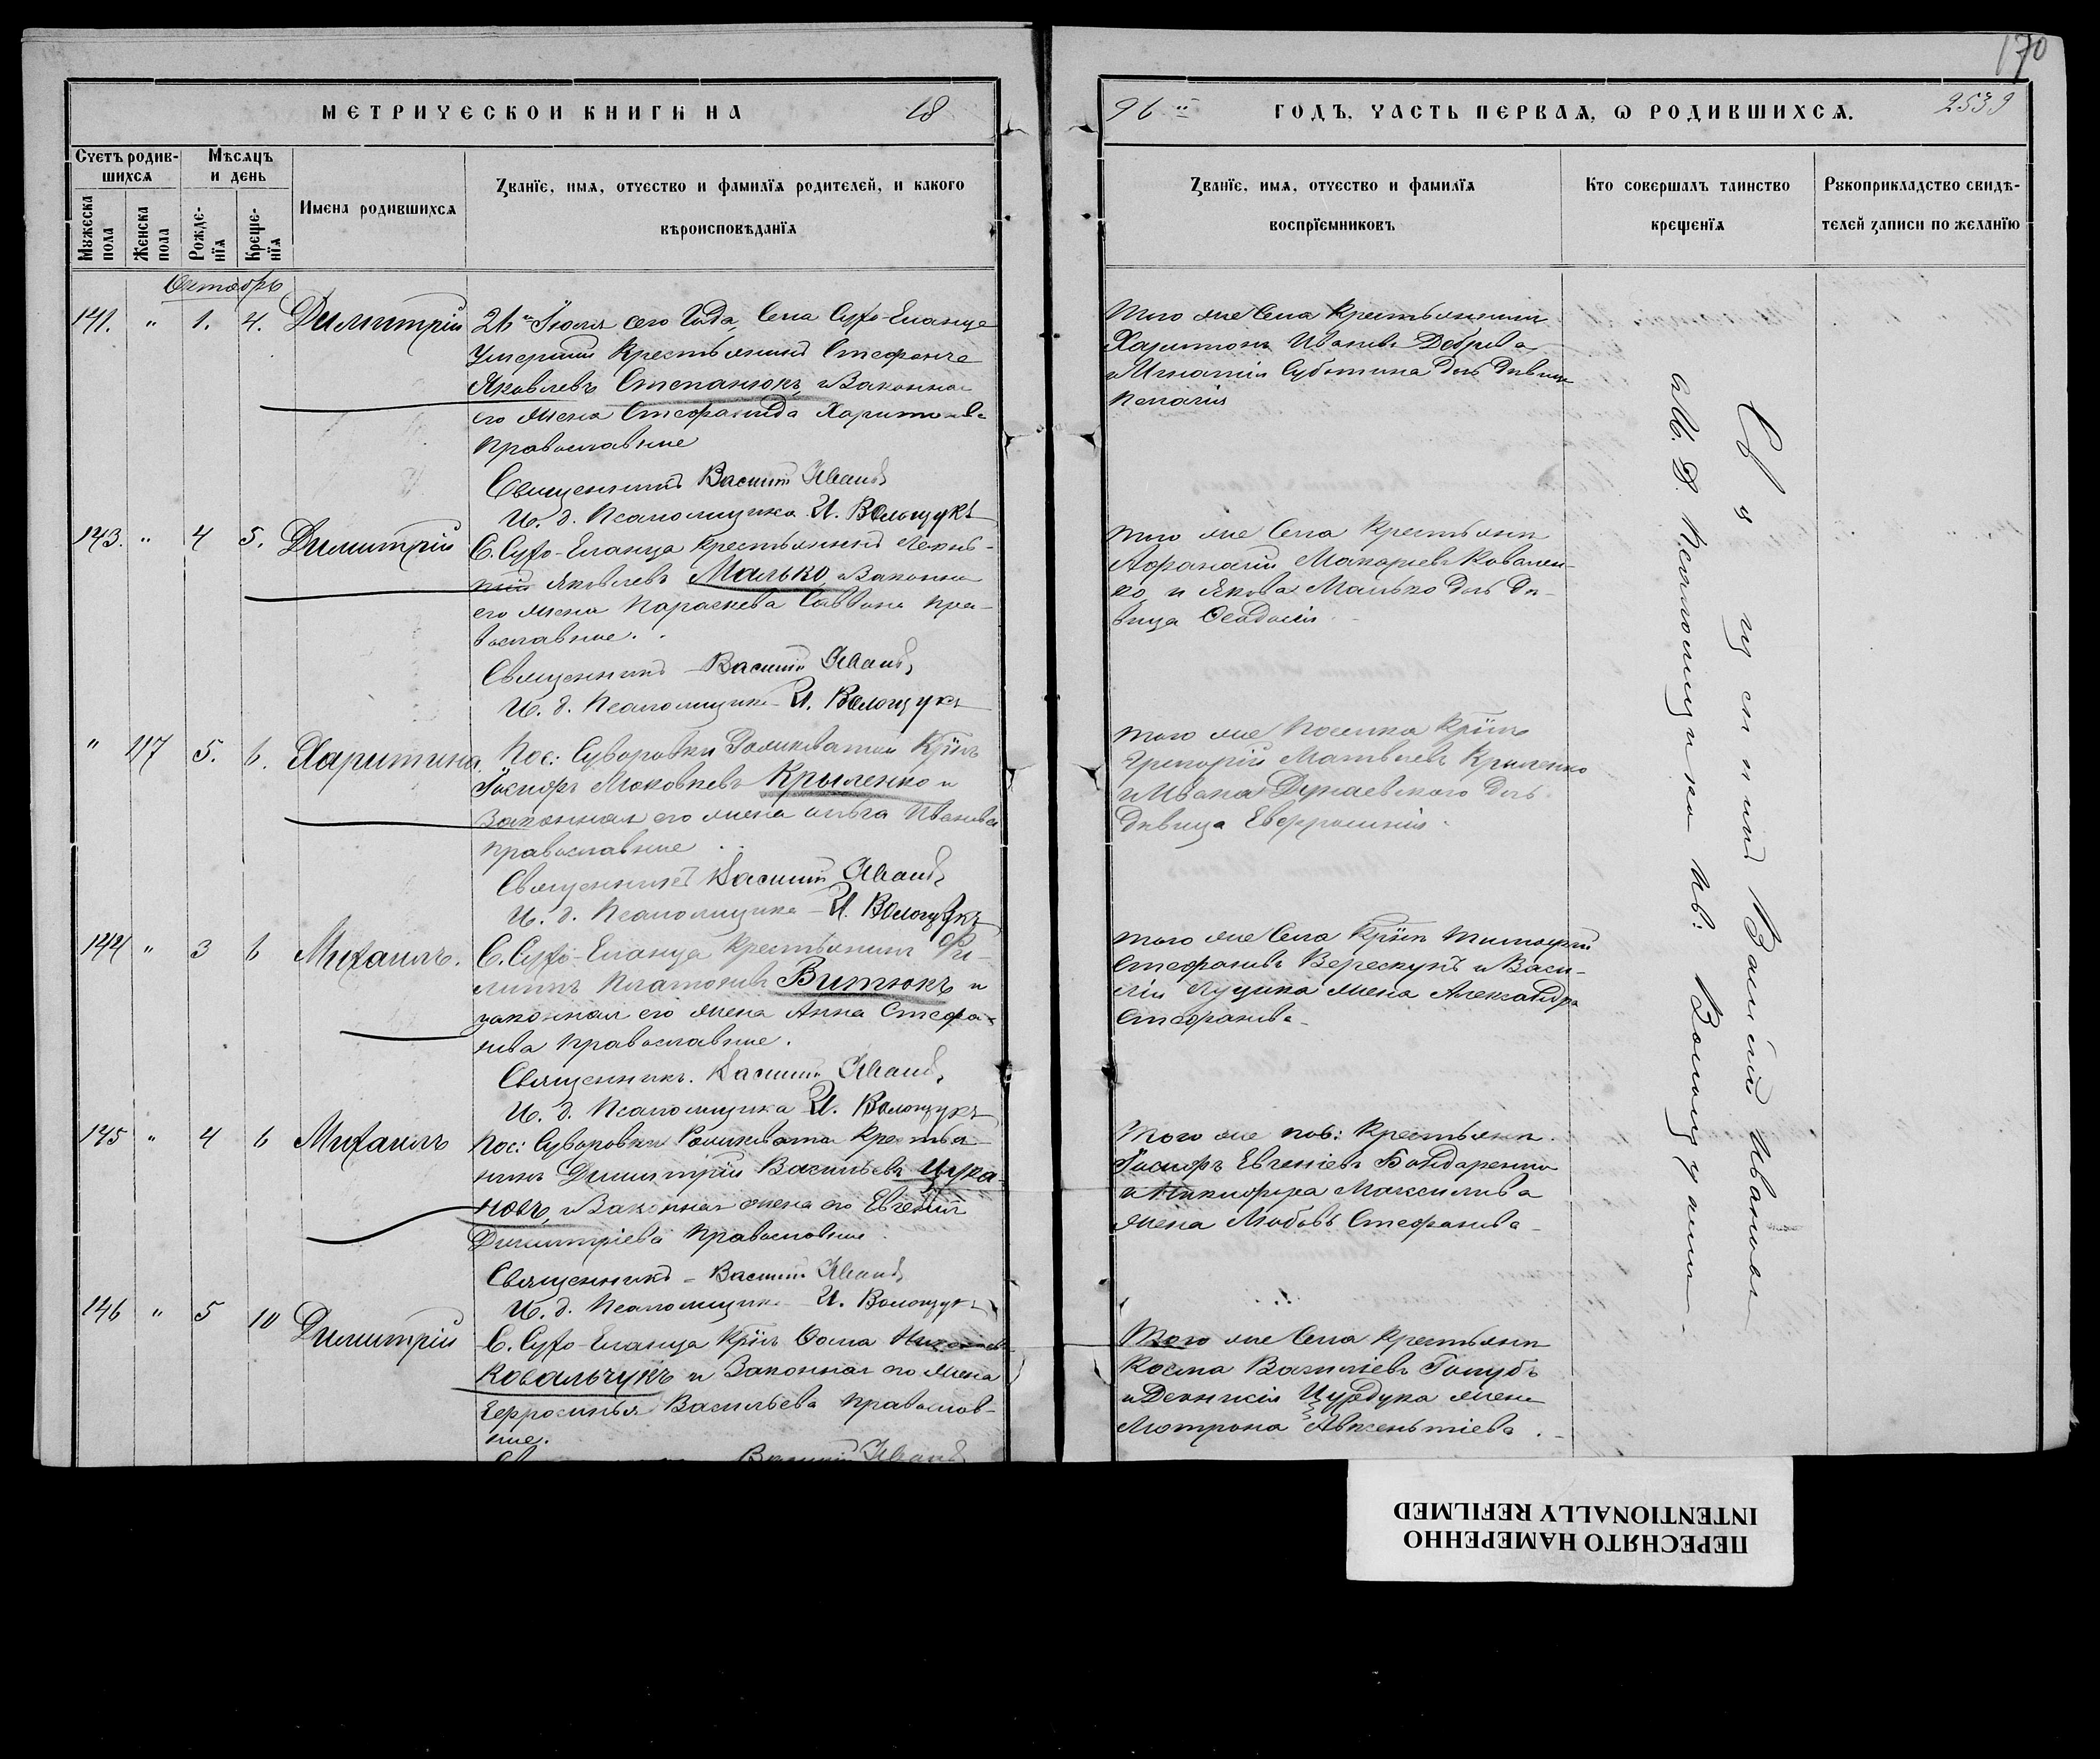 170
МЕТРИЧЕСКОЙ КНИГИ НА 18
96 ГОДЪ, ЧАСТЬ ПЕРВАЯ, Ѡ РОДИВШИХСЯ. 2539
Счетъ родив-
шихся
Мѣсяцъ
и день
Мужеска
пола
Женска
пола
Рожде-
нїя
Креще-
нїя
Имена родившихся
Званїе, имя, отчество и фамилїя родителей, и какого
вѣроисповѣданїя
Званїе, имя, отчество и фамилїя
воспрїемниковъ
Кто совершалъ таинство
крещенїя
Рукоприкладство свидѣ-
телей записи по желанїю
Октябрь
141. " 1. 4. Димитрій
21 Іюля сего Года, Села Сухо-Еланца
Умершій Крестьянинъ
Яковлевъ Степанюкъ, и Законная
его жена Стефанида Харитонова
православные
Священникъ Василій Иванов
И. д. Псаломщика И. Волощукъ
Того же Села Крестьянинъ
Харитонъ Ивановъ
и Игнатія Суботина дочь Девица
143. " 4 5. Димитрій
С. Сухо-Еланца Крестьянинъ
Яковлевъ Малько, и Законная
его жена Параскева Саввина пра-
вославные.
Священникъ Василій Иванов
И. д. Псаломщика И. Волощукъ
Того же Села Крестьянинъ
Афанасій Макаріевъ Ковален-
ко, и Якова Малько дочь Де-
вица Феодосія
" 117 5. 6. Харитина
Пос: Суворовки Крнъ
Іосифъ Крыленко и
Законная его жена Ольга Иванова
православные
Священникъ Василій Иванов
И. д. Псаломщика И. Волощукъ
Того же Поселка Крнъ
Григорій Матвеевъ Крыленко
и Ивана Дунаевского дочь
Девица Евфросинія
144 " 3 6 Михаилъ.
С. Сухо-Еланца Крестьянинъ Фи-
липпъ Платоновъ Витюкъ и
законная его жена Анна Стефа-
нова православные.
Священникъ. Василій Иванов
И. д. Псаломщика И. Волощукъ
Того же Села Крнъ Тимофей
Стефановъ Верескунъ и Васи-
лія Луцика жена Александра
Стефанова
145 " 4 6 Михаилъ
Пос: Суворовки Крестья-
нинъ Димитрій Васильевъ Цука-
новъ, и Законная жена его Евгенія
Димитріева православные
Священникъ Василій Иванов
И. д. Псаломщика И. Волощукъ
Того же пос: Крестьянинъ
Іосифъ Евгеніевъ Бондаренко
и Никифора Максимова
жена Любовь Стефанова
146 " 5 10 Димитрій
С. Сухо-Еланца Крнъ Фома
Ковальчукъ и Законная его жена
Ефросинья Васильева православ-
ные.
Василій Иванов
Того же Села Крестьянинъ
Косма Василіевъ Голубъ
и Діонисія Цурдука жена
Мотрона Авксентіева.
Священникъ Василій Ивановъ
с И. Д. Псаломщика Ив: Волощукомъ.
ПЕРЕСНЯТО НАМЕРЕННО
INTENTIONALLY REFILMED